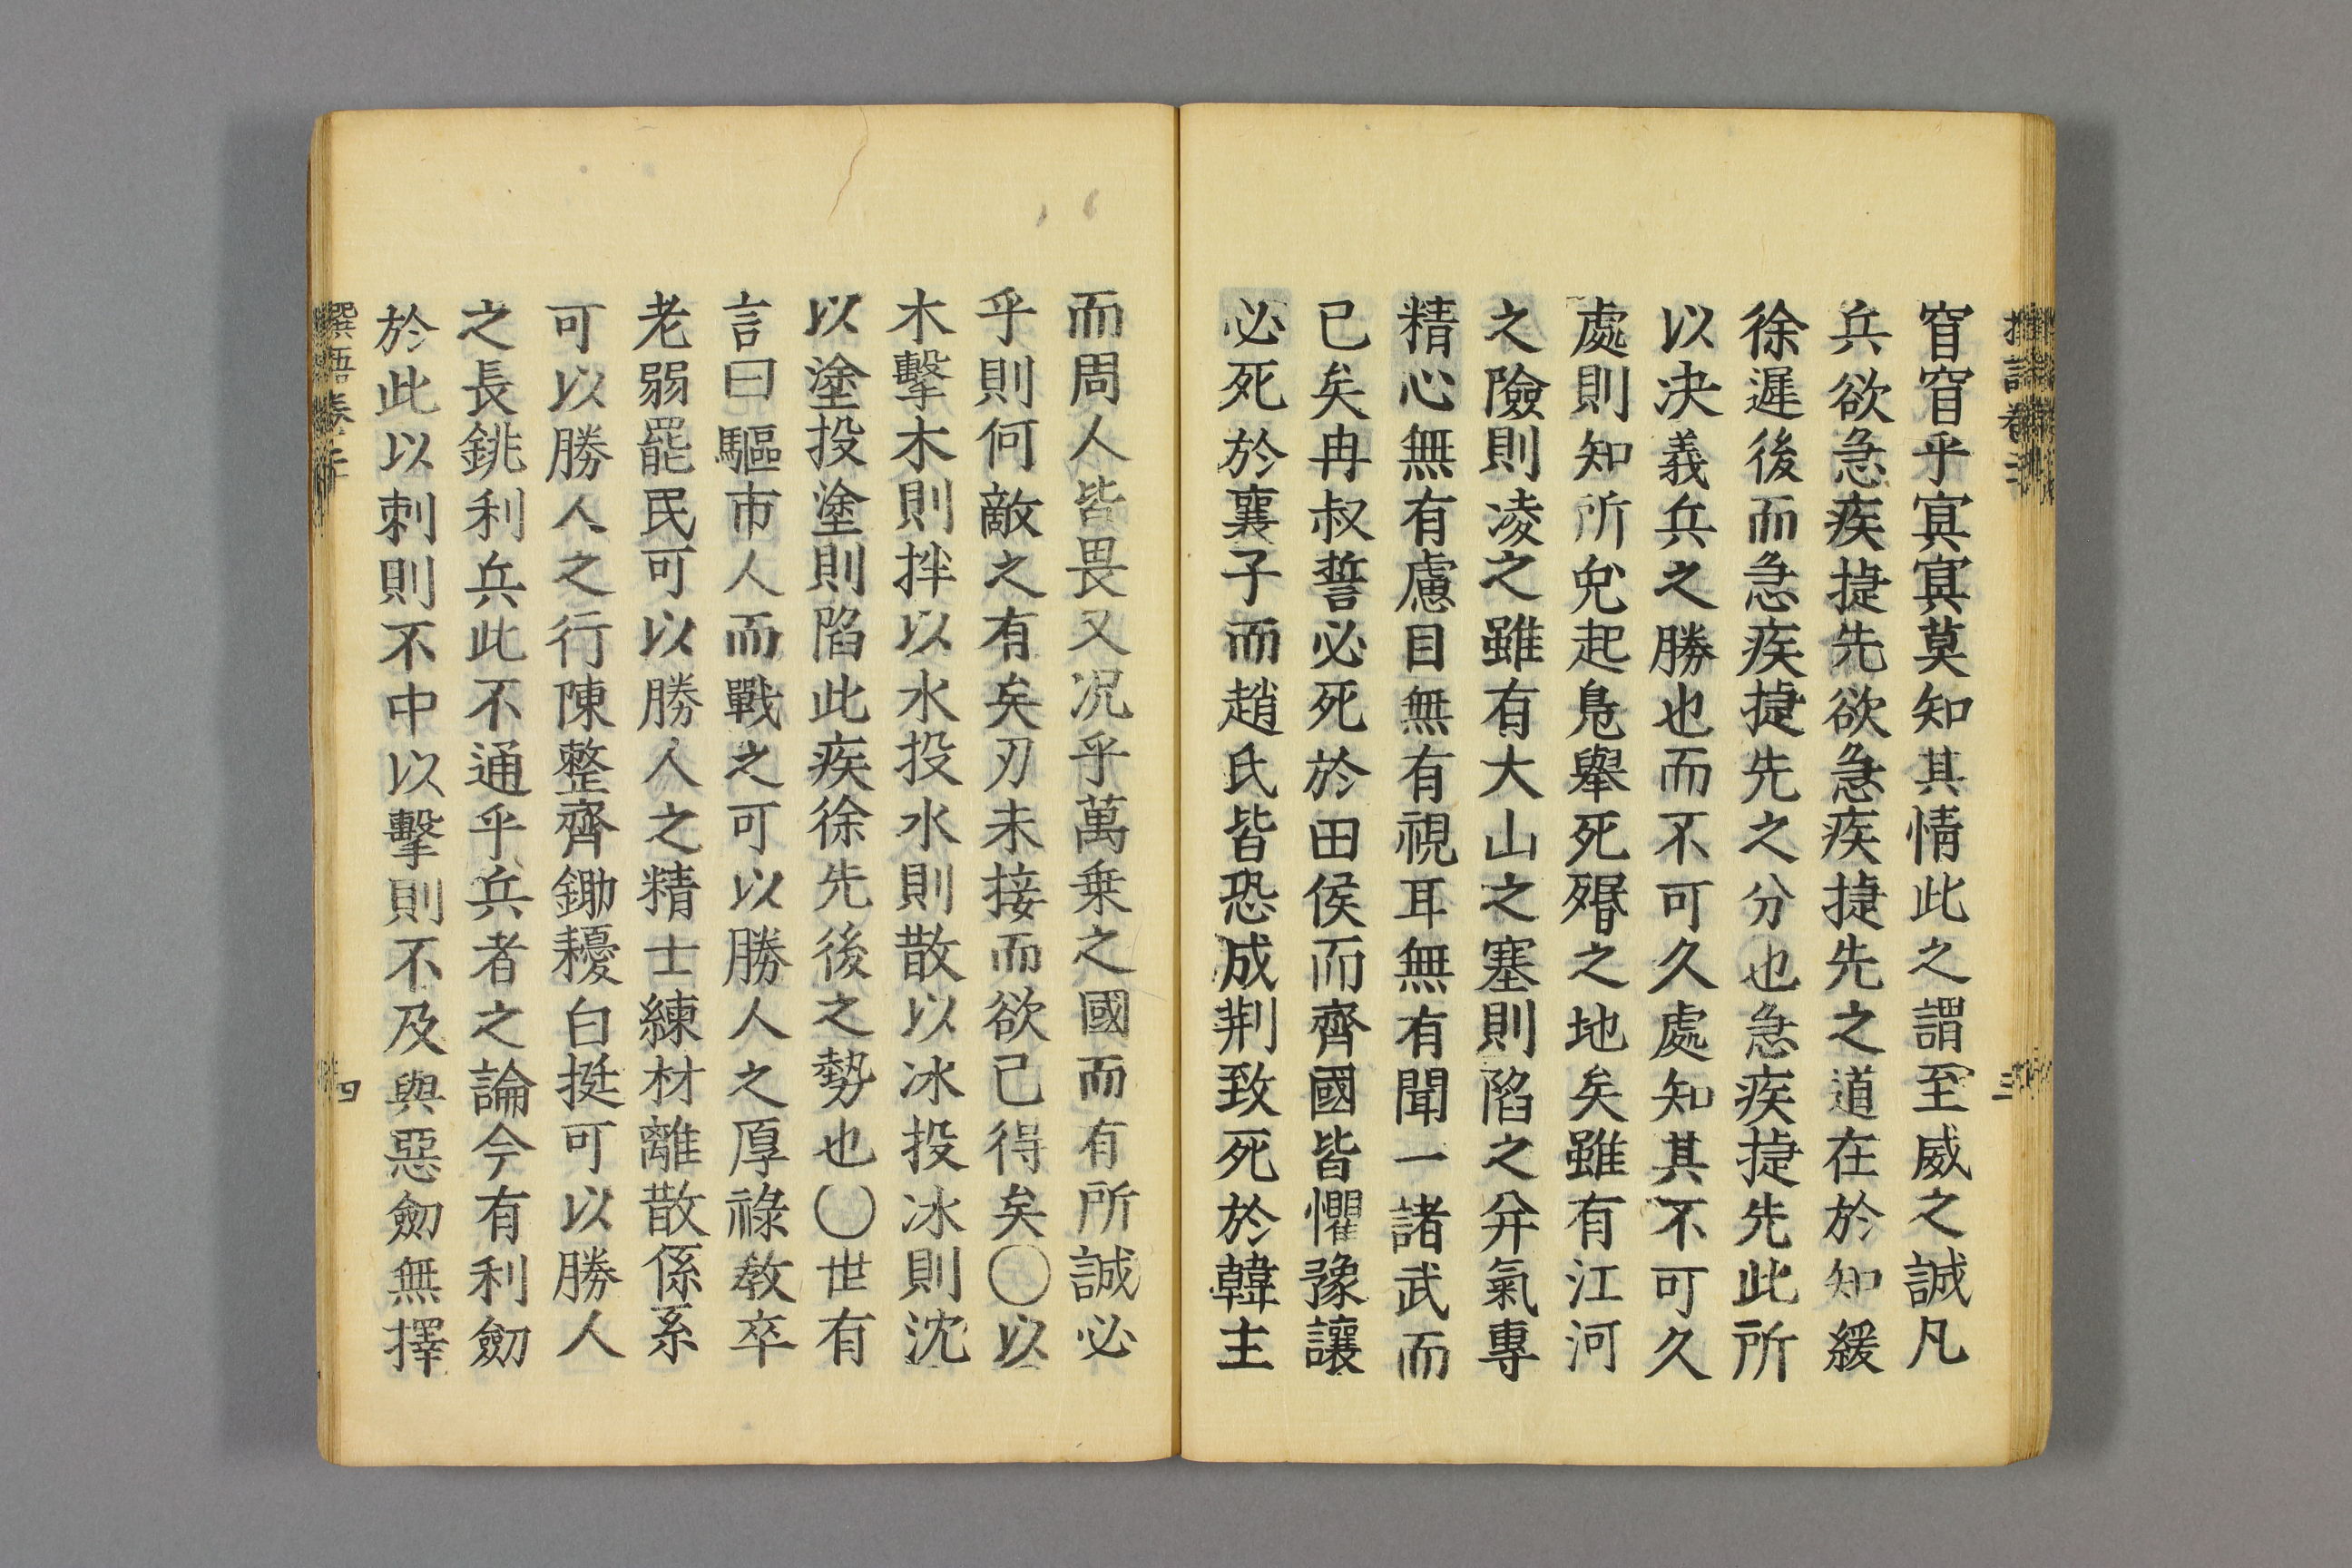 窅窅乎㝠㝠莫知其情此之謂至威之誠凡
兵欲急疾捷先欲急疾捷先之道在於知緩
徐遲後而急疾捷先之分也急疾捷先此所
以决義兵之勝也而不可久處知其不可久
處則知所兎起鳬舉死殙之地矣雖有江河
之險則凌之雖有大山之塞則陷之并氣專
精心無有慮目無有視耳無有聞一諸武而
已矣冉叔誓必死於田侯而齊國皆懼豫讓
必死於襄子而趙氏皆恐成荆致死於韓主
而周人皆畏又况乎萬乗之國而有所誠必
乎則何敵之有矣刃未接而欲己得矣○以
木擊木則拌以水投水則散以冰投冰則沈
以塗投塗則陷此疾徐先後之勢也○世有
言曰驅市人而戰之可以勝人之厚祿敎卒
老弱罷民可以勝人之精士練材離散係系
可以勝人之行陳整齊鋤耰白挺可以勝人
之長銚利兵此不通乎兵者之論今有利劒
於此以刺則不中以擊則不及與惡劒無擇
四